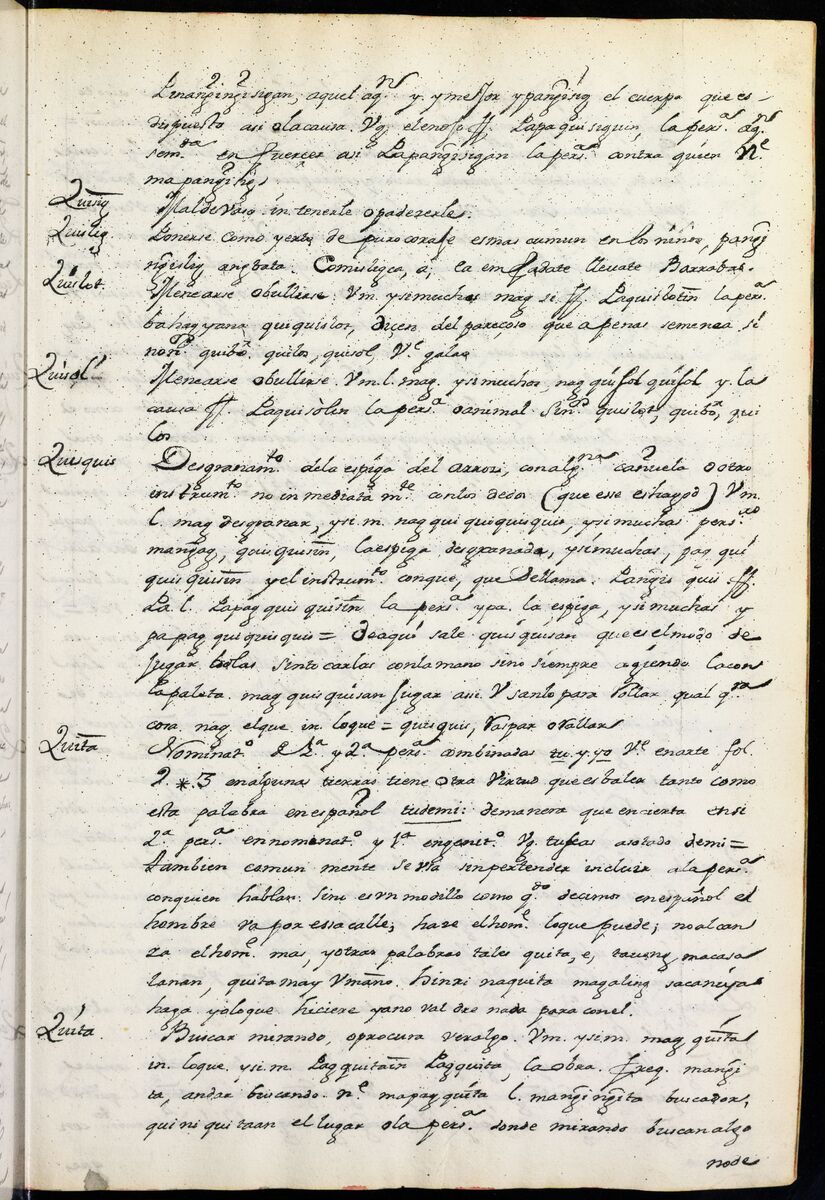 aquel aq.n y. y mejor y pangisig el cuerpo que es-
dispuesto asi olacausa. Vg. elenojo ff. la pers.a aq.n
sem.da en fuerces asi la pers.a contra quien N.e
mapangihis
Quisig Mal de Vaso. in. tenerle opadezerle.
Quislig Ponerse como yerto de puro coraje es mas cumun en los niños, pangi
ngislig ang bata. Comisligca, a; ea emfadate llevate Barrabas.
Quislot. Menearse obullirse. Vm. ysimuchos mag si. ff. Paquislotin la pers.a
bahagyana quiquislot, dicen del pareçoso que apenas semenea. si
non. quibo, quilos, quisol, V.e galao
Quisol Menearse obullirse. Vm. l. mag. ysimuchos, nag quisol quisol y. la
causa ff. Paquisolin la pers.a oanimal Sin. quislot, quibo, qui
los.
Quisquis Desgranam.to dela espiga del arros, con alg.na cañuela o otro
instrum.to no inmediatam.te conlos dedos (que ese es hagod) Vm.
l. mag desgranar, ysi.m. nag qui quisquisquis, ysimuchas pers.as
mangag, quisquisin, laespiga desgranada, ysimuchas, pag qui
quisquisin y el instrum.to conque, que sellama. Pangis quis. ff.
Pa. l. Papag quis quisin. la pers.a ypa. la espiga, ysimuchas y
papag quisquisquis = deaqui sale quisquisan, que es el modo de
jugar bolas sintocarlas conlamano sino siempre a con
lapaleta. mag quisquisan jugar asi. V sanlo para Pollar qual q.ra
cosa, nag. elque. in. loque = quisquis, Raspar o Vallar
Quita Nominat.o d 1.a y 2.a pers.a combinadas tu. y. yo V.e enarte fol.
2 * 3 enalgunas tierras tiene otra Virtud que es baler tanto como
esta palabra en español tudemi: demanera que encierta ensi
2.a pers.a en nominat.o y 1.a engenit.o Vg. tuseas asotado demi =
tambien comun mente se Vsa sinpretender incluir ala pers.a
conquien hablan. Sino es vn modillo como q.do decimos en español el
hombre va por essa calle; haze elhom.e loque puede; no alcan
za elhom.e mas, yotras palabras tales quita, e, tauong macasa
lanan, quita may Vmano. hindi naquita magaling sa caniya
haga yoloque hiciere yano val dre nada para conel.
Quita Buscar mirando, oprocura veralgo. Vm. ysim. mag quita
in. loque. ysi.m. Pag quitain Pagquita, la obra. freq. mangi
ta, andar buscando. N.e mapag quita l. mangingita buscador,
quiniquitaan el lugar ola pers.a donde mirando buscan algo
node